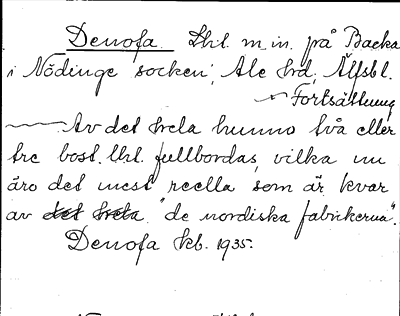 Denofa. Lhl. m. in. på Backa
i Nödinge socken, Ale hrd, Älfsbl.
Fortsättning
Av det hela hunno två eller
tre bost. lhl. fullbordas, vilka nu
äro det mest reella som är kvar
av det hela "de nordiska fabrikerna".
Denofa kb. 1935.